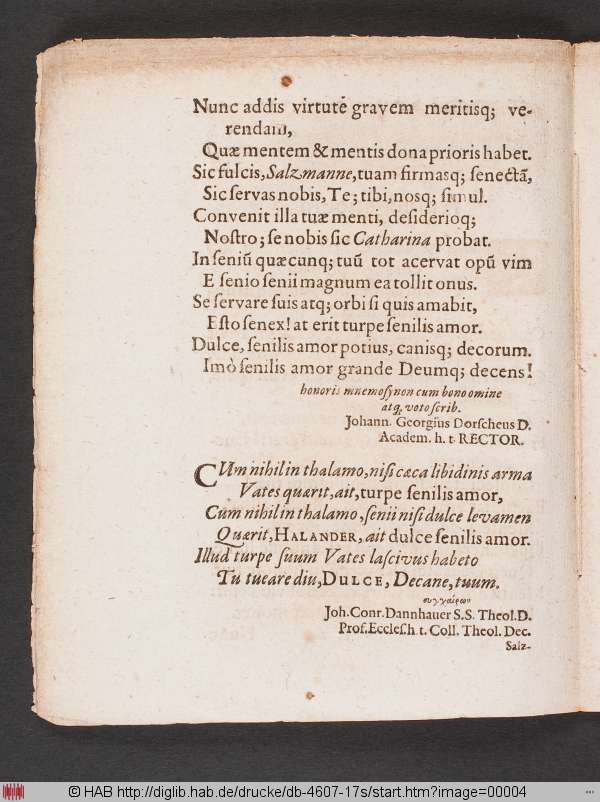 Nunc addis virtutē gravem meritisq; ve-
rendam,
Quæ mentem & mentis dona prioris habet.
Sic fulcis, Salzmanne, tuam firmasq; senectā,
Sic servas nobis, Te; tibi, nosq; simul.
Convenit illa tuæ menti, desiderioq;
Nostro; se nobis sic Catharina probat.
In seniū quæcunq; tuū tot acervat opū vim
E senio senii magnum ea tollit onus.
Se servare suis atq; orbi si quis amabit,
Esto senex! at erit turpe senilis amor.
Dulce, senilis amor potius, canisq; decorum.
Imò senilis amor grande Deumq; decens!
honoris mnemosynon cum bono omine
atq; voto scrib.
Johann. Georgius Dorscheus D.
Academ. h. t. RECTOR.
CUm nihil in thalamo, nisi cæca libidinis arma
Vates quærit, ait, turpe senilis amor,
Cum nihil in thalamo, senii nisi dulce levamen
Quærit, HALANDER, ait dulce senilis amor.
Illud turpe suum Vates lascivus habeto
Tu tueare diu, DULCE, Decane, tuum.
συγχαίρων
Joh. Conr. Dannhauer S.S. Theol. D.
Prof. Eccles. h. t. Coll. Theol. Dec.
Salz-
© HAB http://diglib.hab.de/drucke/db-4607-17s/start.htm?image=00004